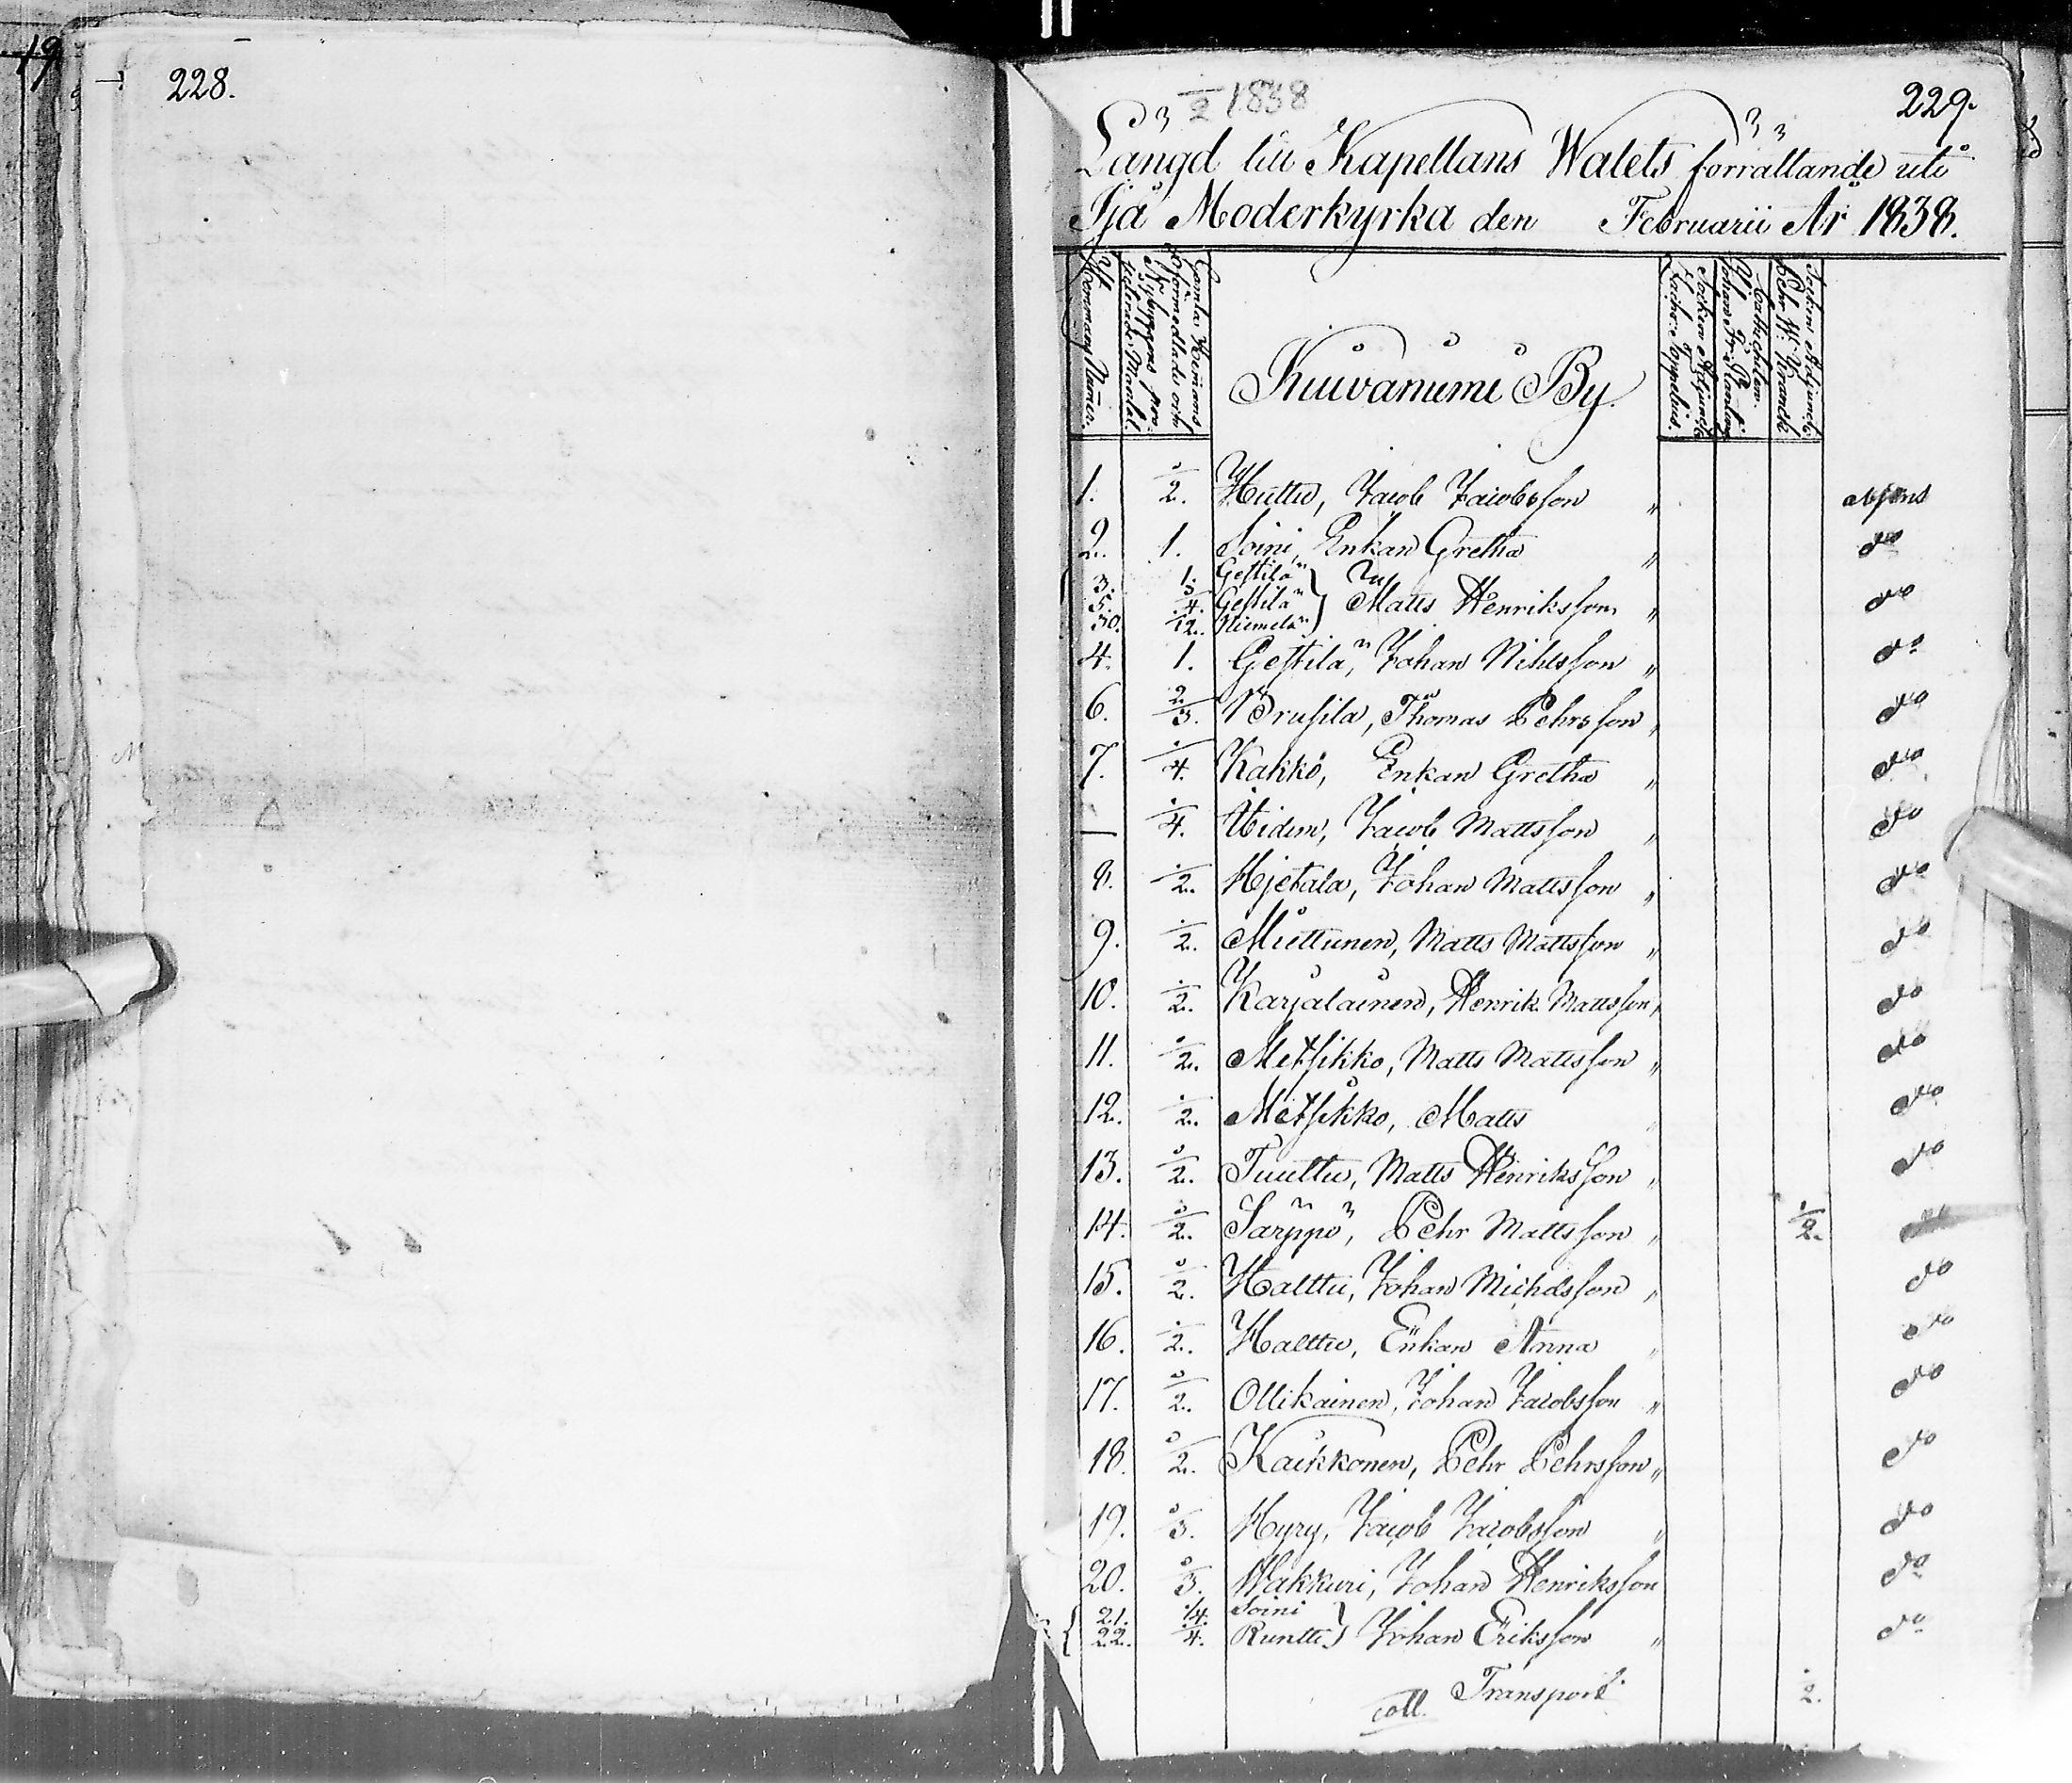 228.
229.
1838
Längd till Kapellans Walets förrättande uti
Ijå Moderkyrka den Februarii År 1838.
Gamla Hemmans
Kuivaniemi By.
1. 1/2. Huttu, Jacob Jacobsson " absens
2. 1. Soini, Enkan Gretha " do
3. Gestilä
5. 4. Gestilä } Matts Henriksson " do
30. 12. Niemelä
4. 1. Gestilä, Johan Nihlsson " do
6. 2/3. Brusila, Thomas Pehrsson " do
7. 1/4. Kakko, Enkan Gretha " do
— 1/4. Widen, Jacob Mattsson " do
8. 1/2. Hjetala, Johan Mattsson " do
9. 1/2. Miettunen, Matts Mattsson " do
10. 1/2. Karjalainen, Henrik Mattsson " do
11. 1/2. Metsikko, Matts Mattsson " do
12. 1/2. Metsikko, Matts do
13. 1/2. Tuuttu, Matts Henriksson " do
14. 1/2. Särppö, Pehr Mattsson " 1/2.
15. 1/2. Halttu, Johan Michelsson " do
16. 1/2. Halttu, Enkan Anna " do
17. 1/2. Ollikainen, Johan Jacobsson " do
18. 1/2. Kaikkonen, Pehr Pehrsson " do
19. 1/3. Hyry, Jacob Jacobsson " do
20. 1/3. Wakkuri, Johan Henriksson do
21. 1/4. Soini
22. 1/4. Runtti } Johan Eriksson " do
coll. Transport 1/2.